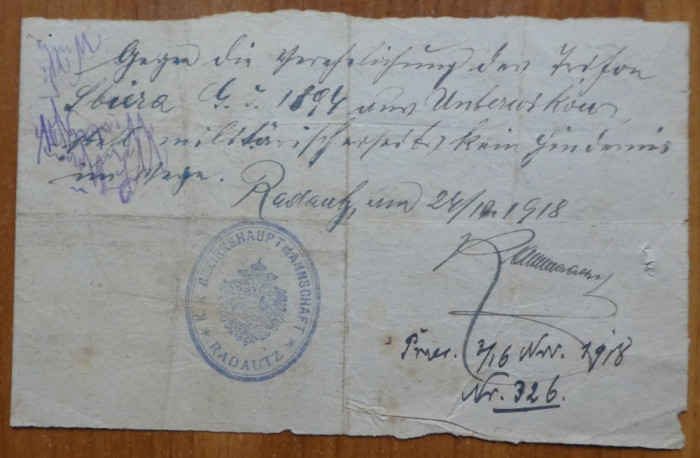 Gegen die Verehelichung des Trifon
Sbiera G. J. 1894 aus Unterwikow
steht militärischerseits kein Hindernis
im Wege.
Radautz, am 24/10. 1918
K. K. BEZIRKSHAUPTMANNSCHAFT
* RADAUTZ *
Praes. 3/16 Nov. 1918
Nr. 326.